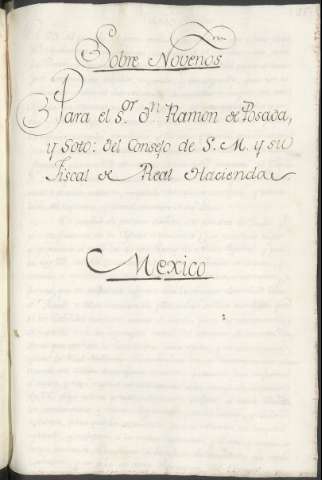 Sobre Novenos
Para el S.ᵒʳ Dⁿ Ramon de Posada,
y Soto: del Consejo de S. M. y su
Fiscal de Real Hacienda
Mexico